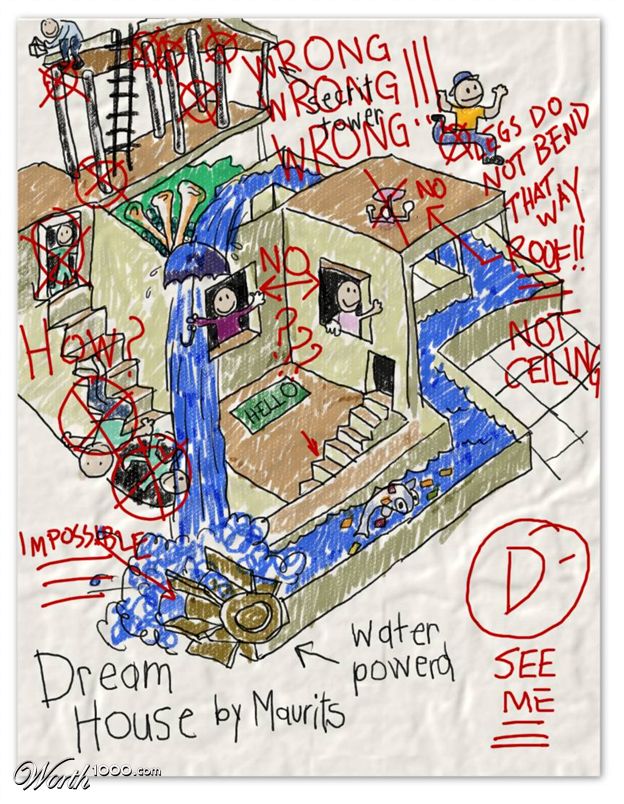 WRONG
WRONG
WRONG!!!
secrit
tower
LEGS DO
NOT BEND
THAT
WAY
NO
ROOF!!
NOT
CEILING
NO
???
HOW?
HELLO
IMPOSSIBLE
D-
SEE
ME
Water
powerd
Dream
House by Maurits
Worth1000.com